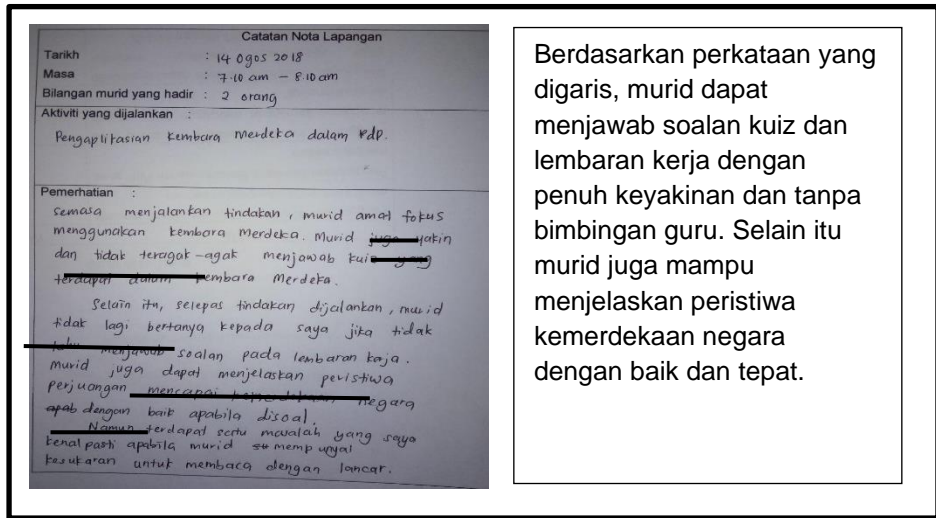 Catatan Nota Lapangan
Tarikh : 14 Ogos 2018
Masa : 7.10 am - 8.10 am
Bilangan murid yang hadir : 2 orang
Aktiviti yang dijalankan :
Pengaplikasian Kembara Merdeka dalam PdP.
Pemerhatian :
semasa menjalankan tindakan, murid amat fokus
menggunakan kembara Merdeka. Murid juga yakin
dan tidak teragak-agak menjawab kuiz yang
terdapat dalam kembara Merdeka.
Selain itu, selepas tindakan dijalankan, murid
tidak lagi bertanya kepada saya jika tidak
tahu menjawab soalan pada lembaran kerja.
Murid juga dapat menjelaskan peristiwa
perjuangan mencapai kemerdekaan negara
dengan baik apabila disoal.
Namun terdapat satu masalah yang saya
kenal pasti apabila murid mempunyai
kesukaran untuk membaca dengan lancar.
Berdasarkan perkataan yang
digaris, murid dapat
menjawab soalan kuiz dan
lembaran kerja dengan
penuh keyakinan dan tanpa
bimbingan guru. Selain itu
murid juga mampu
menjelaskan peristiwa
kemerdekaan negara
dengan baik dan tepat.